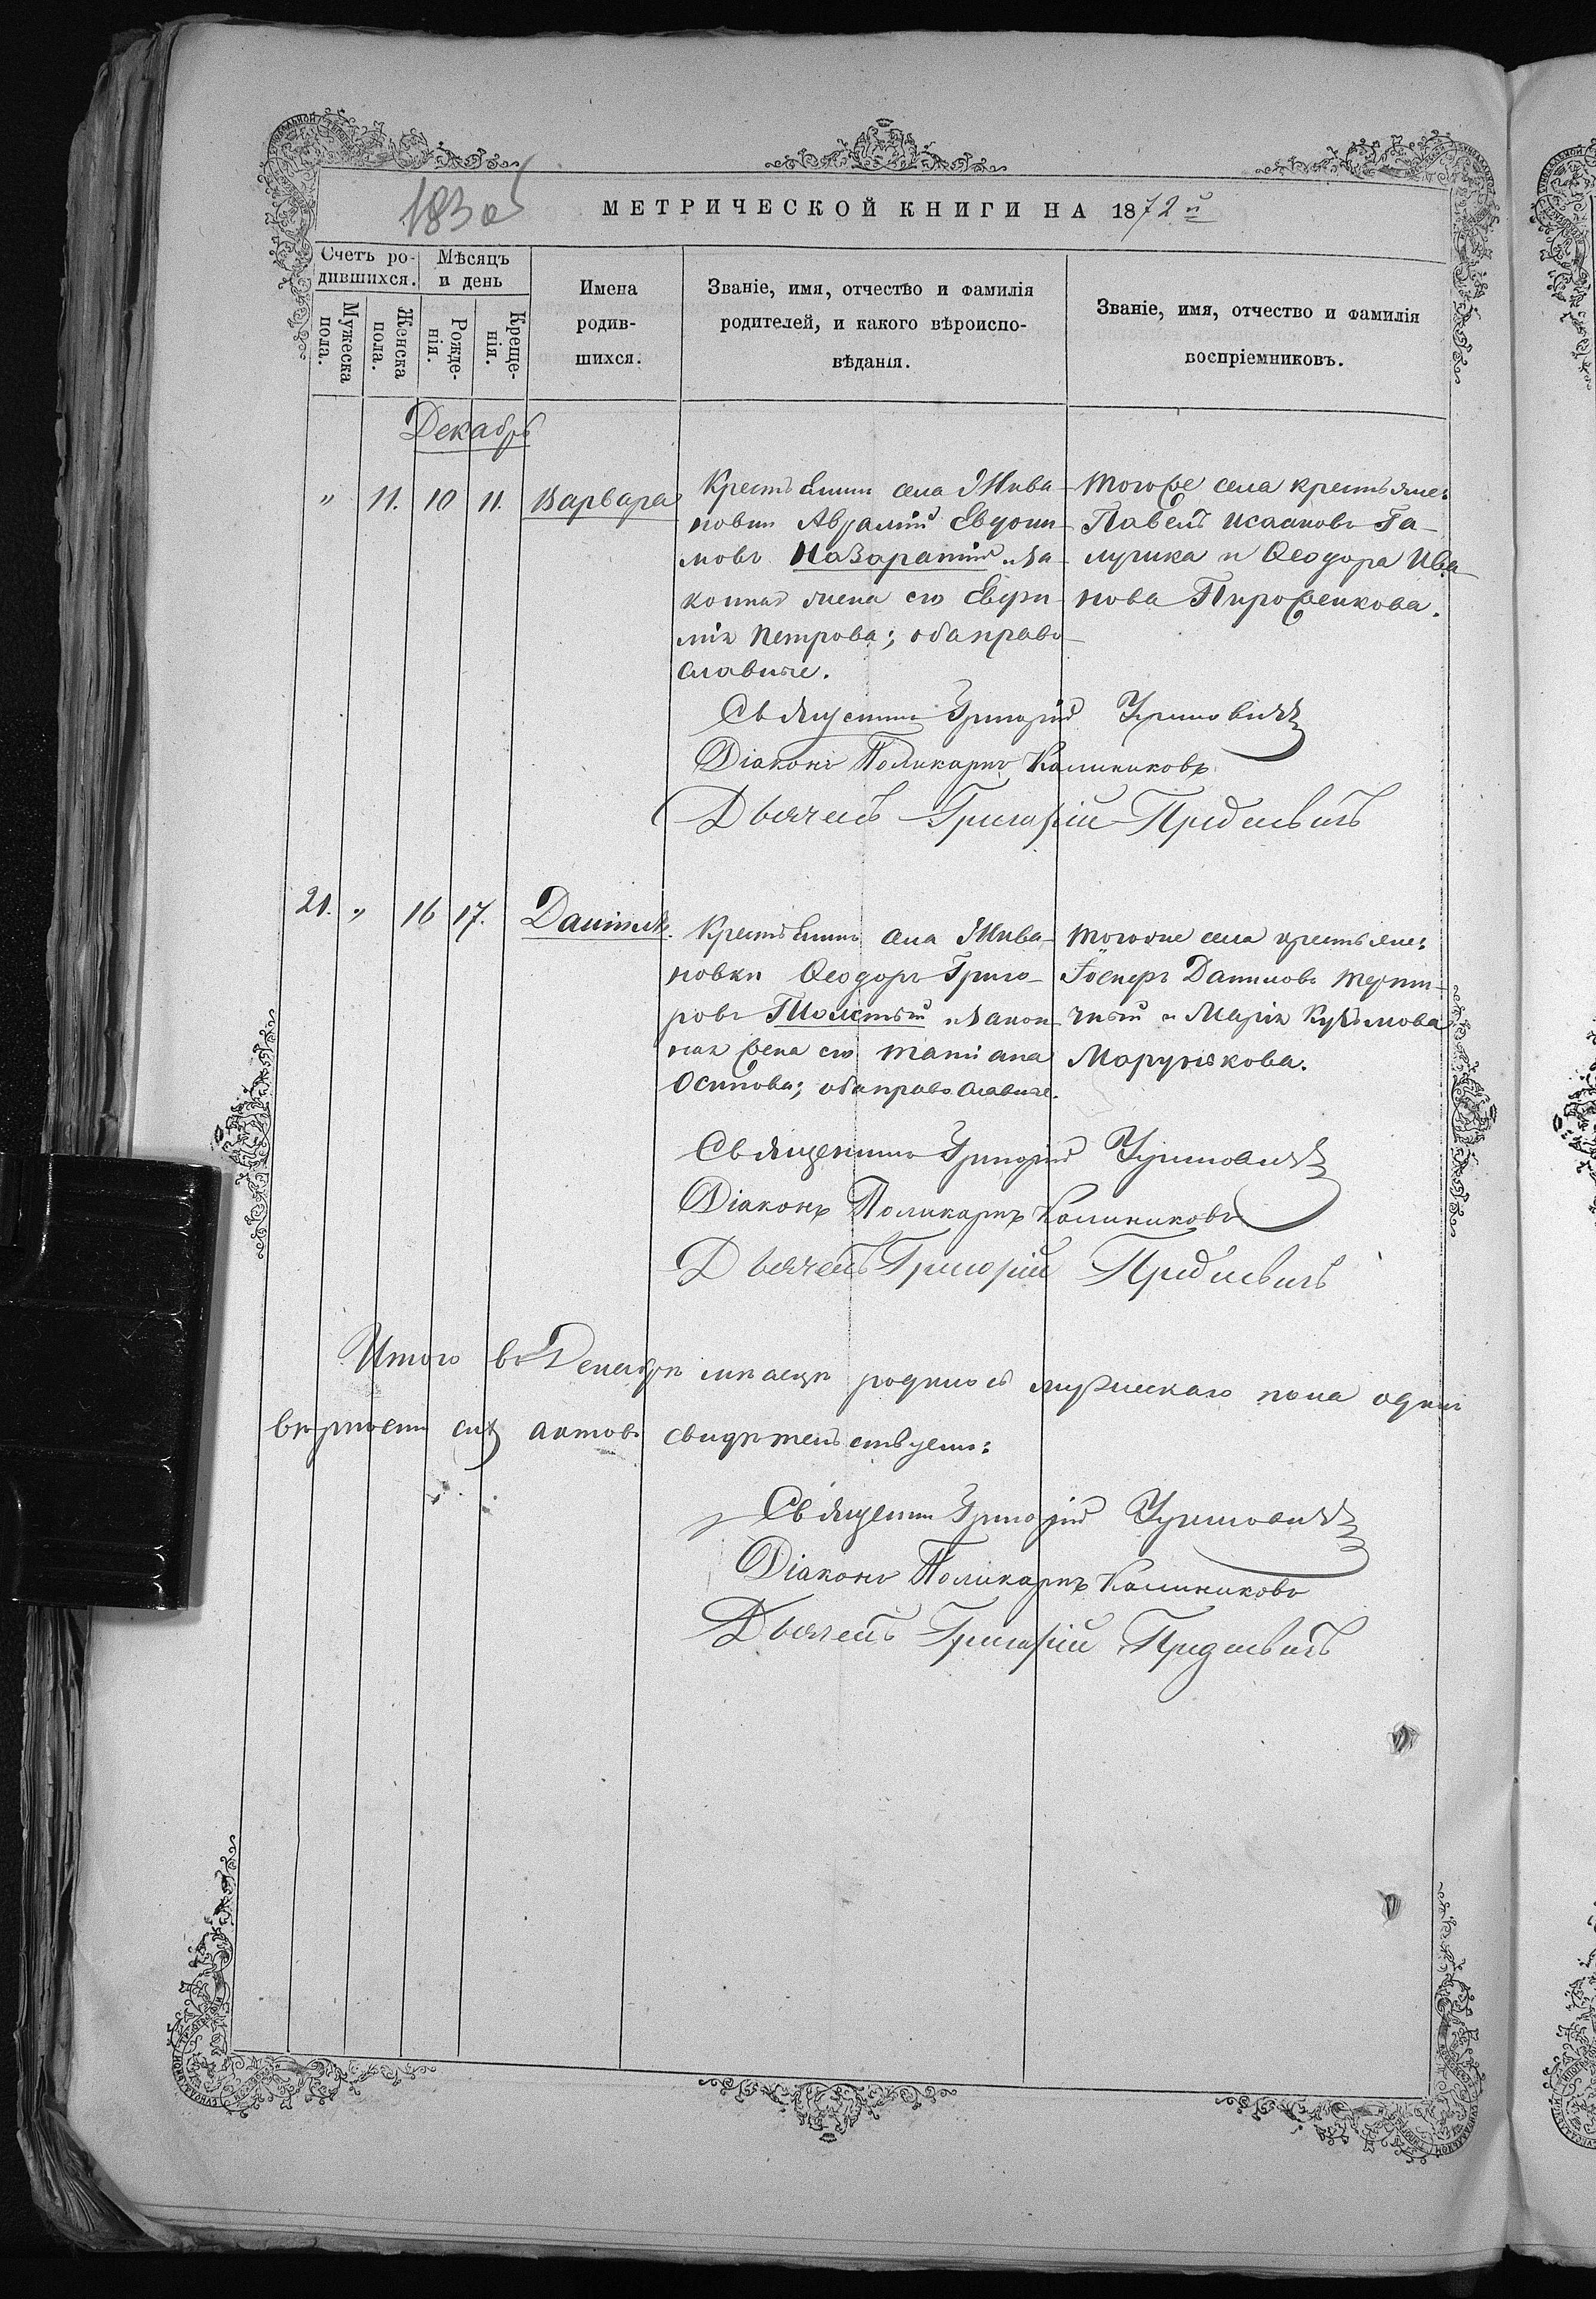 183 об
МЕТРИЧЕСКОЙ КНИГИ НА 1872й
Счетъ ро-
дившихся.
Мѣсяцъ
и день
Мужеска
пола.
Женска
пола.
Рожде-
нія.
Креще-
нія.
Имена
родив-
шихся.
Званіе, имя, отчество и фамилія
родителей, и какого вѣроиспо-
вѣданія.
Званіе, имя, отчество и фамилія
воспріемниковъ.
Декабрь
" 11. 10 11. Варвара
Крестьянинъ села Жива-
новки Аврамій Евдоки-
мовъ Назаратій и за-
конная жена его Евфи-
мія Петрова; оба право-
славные.
Тогоже села крестьяне:
Павелъ Исааковъ Га-
лушка и Ѳеодора Ива-
нова Пироженкова.
Священникъ Григорій
Діаконъ Поликарпъ Калиниковъ
Дьячекъ Григорій
21. " 16 17. Даніилъ.
Крестьянинъ села Жива-
новки Ѳеодоръ Григо-
ровъ Толстый и закон-
ная жена его Татіана
Осипова; оба православные.
Тогоже села крестьяне:
Данилов
и Марія Кузьмова
Священникъ Григорій
Діаконъ Поликарпъ Калиниковъ
Дьячекъ Григорій
Итого въ Декабрѣ мѣсяцѣ родилось мужескаго пола одинъ
вѣрность сихъ актовъ свидѣтельствуемъ:
Священникъ Григорій
Діаконъ Поликарпъ Калиниковъ
Дьячекъ Григорій